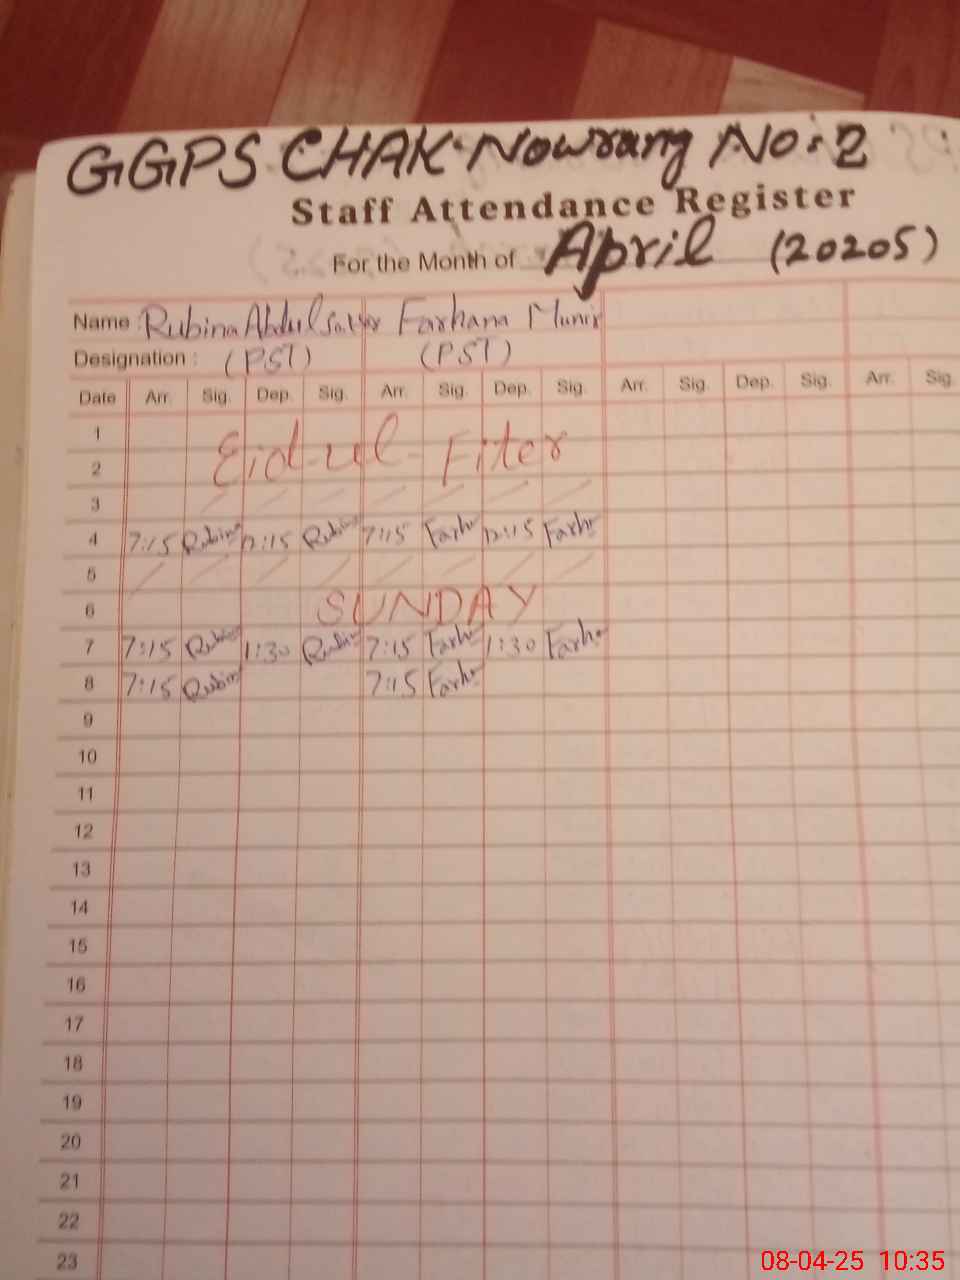 GGPS CHAK Nowrang No:2
Staff Attendance Register
For the Month of April (20205)
Name Rubina Abdul Sattar Farhana Munir
Designation : (PST) (PST)
Date Arr. Sig. Dep. Sig. Arr. Sig. Dep. Sig. Arr. Sig. Dep. Sig. Arr. Sig.
1
Eid-ul-Fiter
2
3
4 7:15 Rubina 12:15 Rubina 7:15 Farha 12:15 Farha
5
6 SUNDAY
7 7:15 Rubina 1:30 Rubina 7:15 Farha 1:30 Farha
8 7:15 Rubina 7:15 Farha
9
10
11
12
13
14
15
16
17
18
19
20
21
22
23
08-04-25 10:35